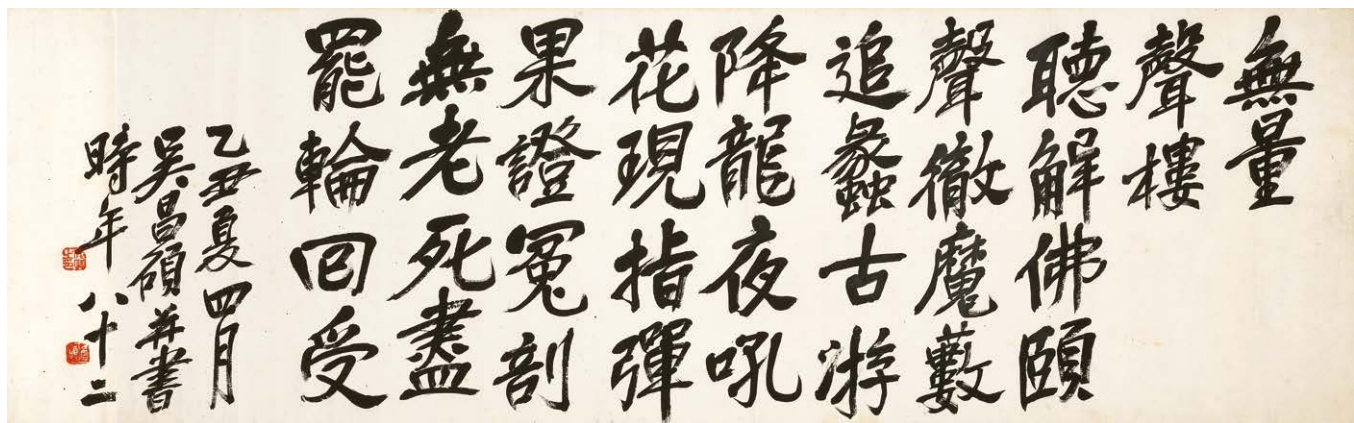 無量
聲樓
聽解佛頤
聲徹魔藪
追蠡古游
降龍夜吼
花現指彈
果證冤剖
無老死盡
罷輪回受
乙丑夏四月
吳昌碩并書
時年八十二